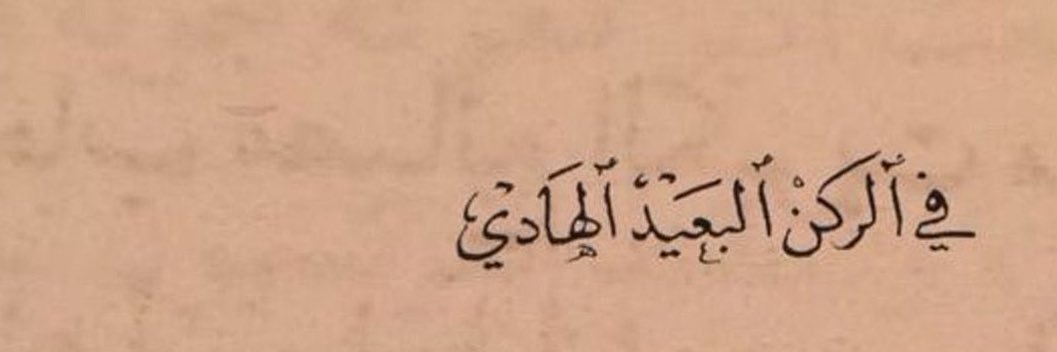 في ٱلركنْ ٱلبعيدْ ٱلهادي